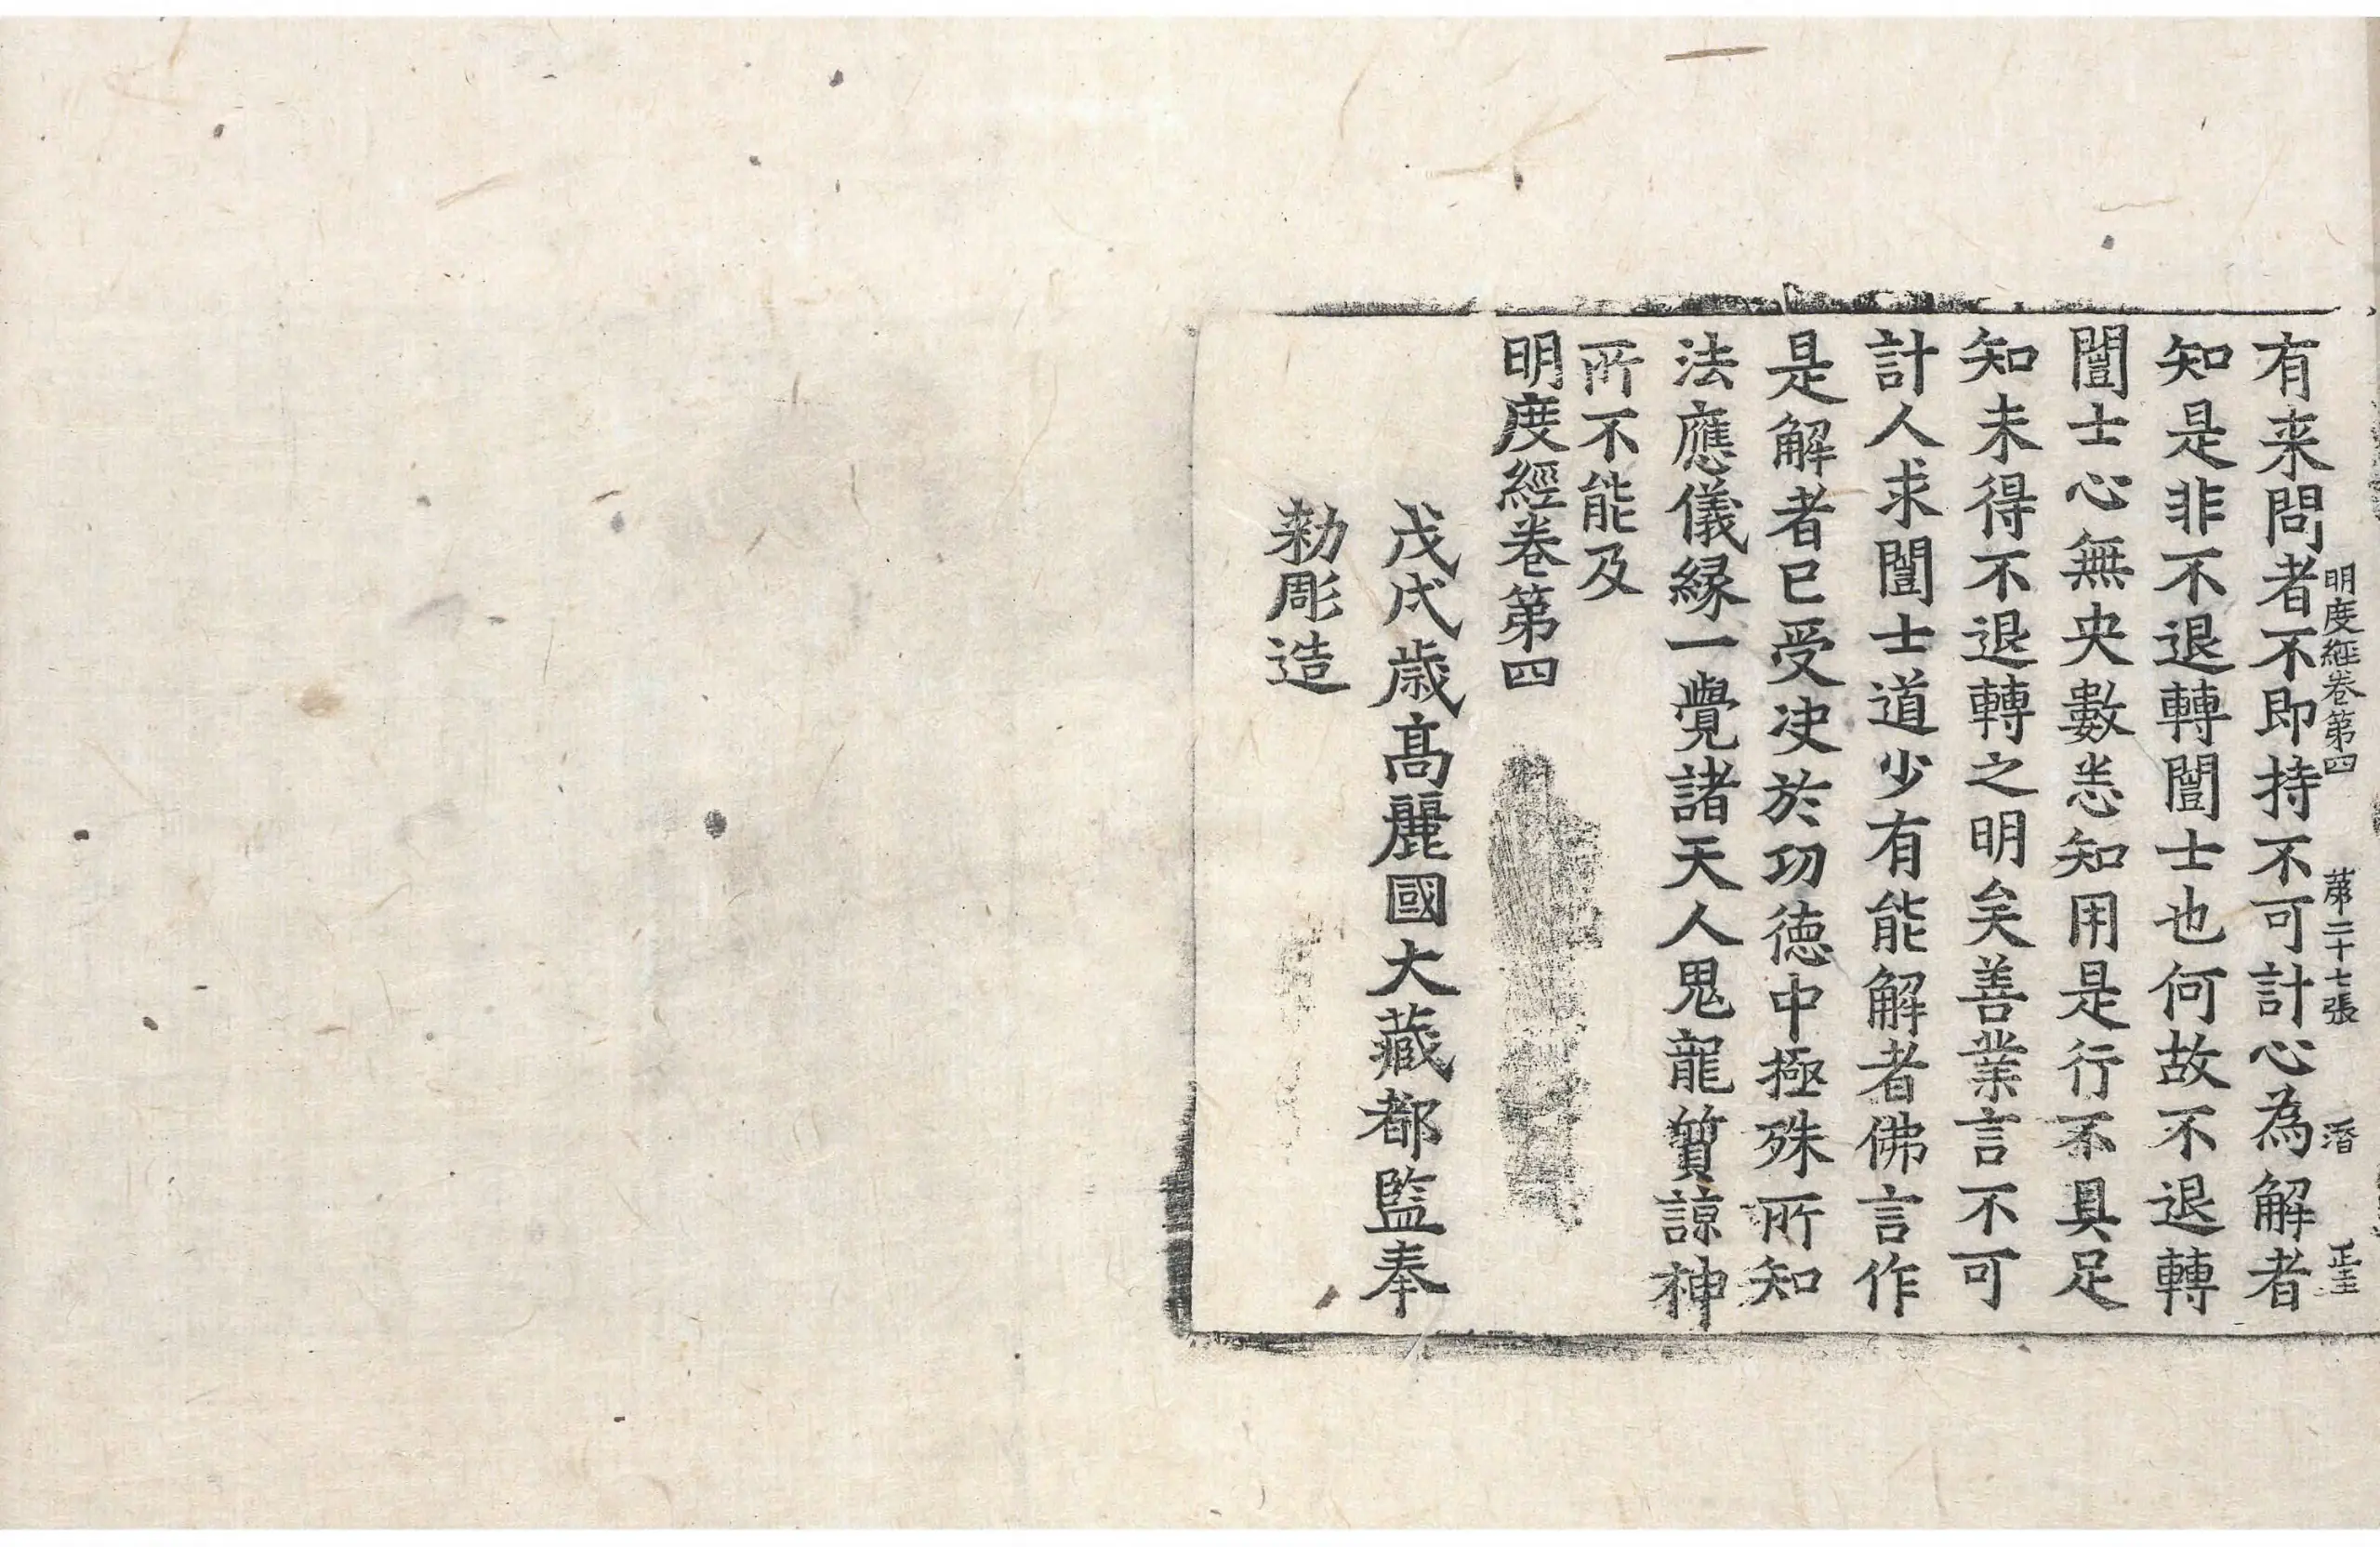 明度經卷第四 第二十七張 潛 正主
有来問者不即持不可計心為解者
知是非不退轉闓士也何故不退轉
闓士心無央數悉知用是行不具足
知未得不退轉之明矣善業言不可
計人求闓士道少有能解者佛言作
是解者已受决於功德中極殊所知
法應儀緣一覺諸天人鬼龍質諒神
所不能及
明度經卷第四
戊戌歲高麗國大藏都監奉
勅彫造